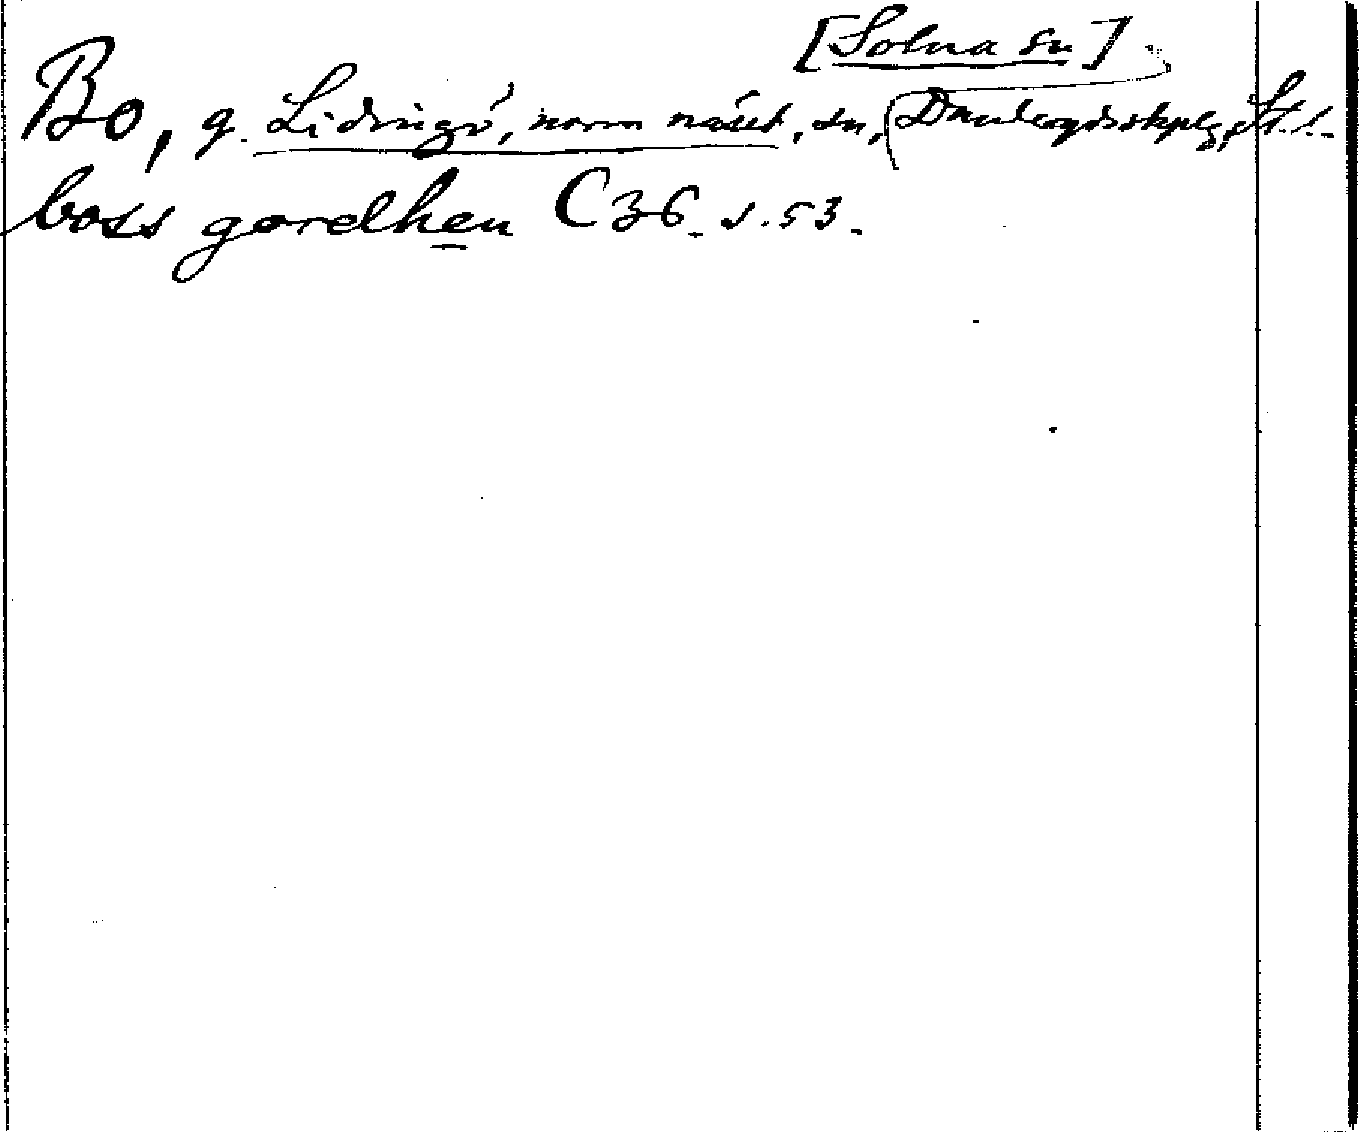 [Solna sn]
Bo, g. Lidingö, norra näset, sn, Danderydsskplg, St.l.
boss gordhen C 36. s. 53.